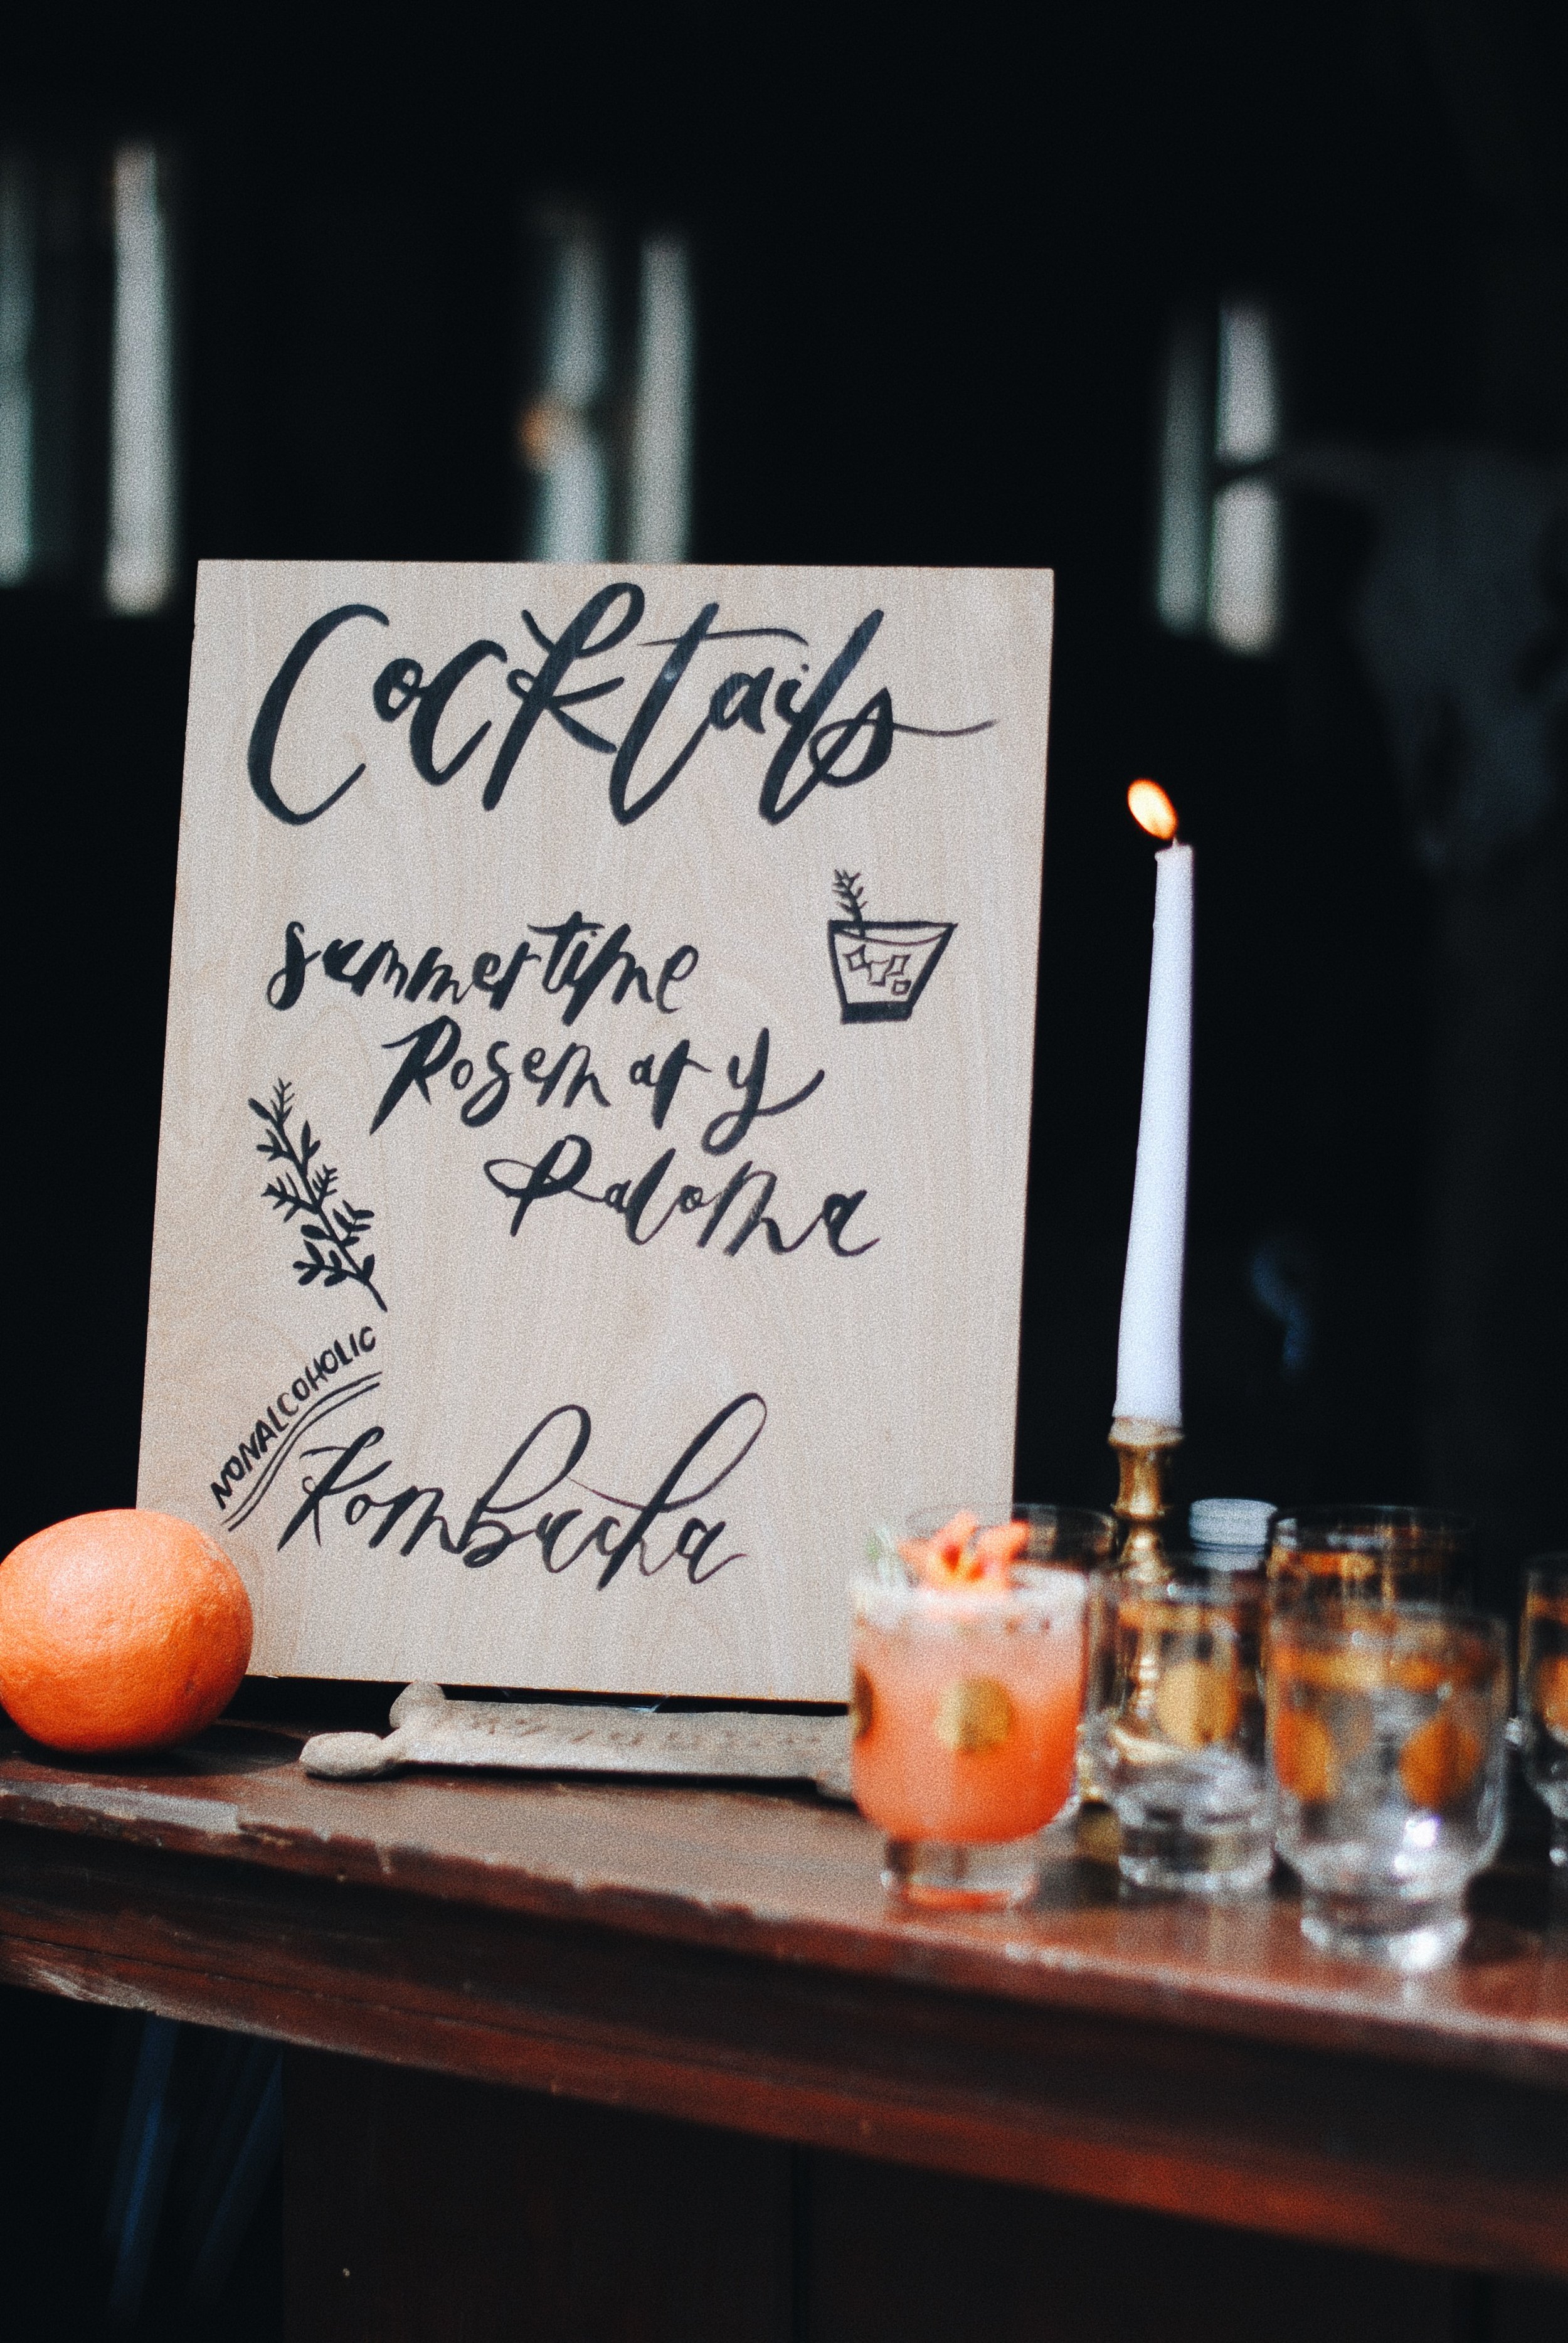 Cocktails
summertime
Rosemary
Paloma
NONALCOHOLIC
Kombucha